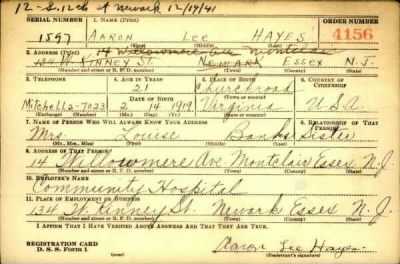 12-S. 12th St Newark 12/19/41
SERIAL NUMBER 1. NAME (Print) ORDER NUMBER
1597 AARON LEE HAYES 4156
(First) (Middle) (Last)
2. ADDRESS (Print) 14 Willowmere Ave Montclair
134 W KINNEY ST. NEWARK ESSEX N.J.
(Number and street or R. F. D. number) (Town) (County) (State)
3. TELEPHONE 4. AGE IN YEARS 5. PLACE OF BIRTH 6. COUNTRY OF CITIZENSHIP
21 Churchroad
DATE OF BIRTH (Town or county)
Mitchell2-7023 2 14 1919 Virginia U.S.A.
(Exchange) (Number) (Mo.) (Day) (Yr.) (State or country)
7. NAME OF PERSON WHO WILL ALWAYS KNOW YOUR ADDRESS 8. RELATIONSHIP OF THAT PERSON
Mrs. Louise Banks Sister
(Mr., Mrs., Miss) (First) (Middle) (Last)
9. ADDRESS OF THAT PERSON
14 Willowmere Ave. Montclair Essex N.J.
(Number and street or R. F. D. number) (Town) (County) (State)
10. EMPLOYER'S NAME
Community Hospital
11. PLACE OF EMPLOYMENT OR BUSINESS
134 W. Kinney St. Newark Essex N.J.
(Number and street or R. F. D. number) (Town) (County) (State)
I AFFIRM THAT I HAVE VERIFIED ABOVE ANSWERS AND THAT THEY ARE TRUE.
REGISTRATION CARD
D. S. S. Form 1 Aaron Lee Hayes
(Registrant's signature)